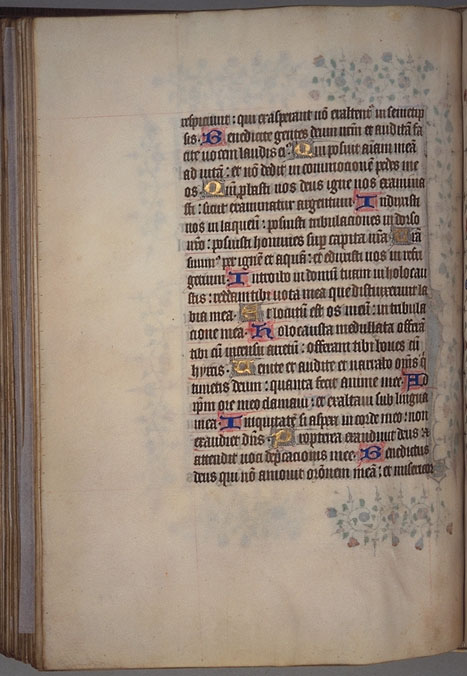 respiciunt : qui exasperant nõ exaltent᷑ in semetip
sis. Benedicite gentes deum nr̃m et auditã fa
cite vocem laudis ei᷒. Qui posuit aĩam meã
ad vitã : et nõ dedit in cõmocionem pedes me
os Qm̃ probasti nos deus igne nos examina
sti : sicut examinatur argentum. Induxisti
nos in laqueũ : posuisti tribulaciones in dorso
nr̃o : posuisti homines sup capita nr̃a Trã
siuim᷒ per ignẽ et aquã : et eduxisti nos in refri
gerium. Introibo in domũ tuam in holocau
stis : reddam tibi vota mea que distinxerunt la
bia mea. Et locutũ est os meũ : in tribula
cione mea. Holocausta medullata offerã
tibi cũ incensu arietũ : offeram tibi boues cũ
hyrcis. Uenite et audite et narrabo om̃s q̃
timetis deum : quanta fecit anime mee. Ad
ip̃m ore meo clamaui : et exaltaui sub lingua
mea. Iniquitatẽ si aspexi in corde meo : non
exaudiet dñs. Propterea exaudiuit deus et
attendit voci depcacionis mee. Benedictus
deus qui nõ amouit orõnem meã : et misericor